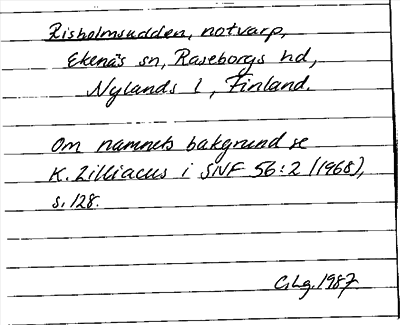 Risholmsudden, notvarp,
Ekenäs sn, Raseborgs hd,
Nylands l, Finland.
Om namnets bakgrund se
K. Zilliacus i SNF 56:2 (1968),
s. 128.
C.Lg. 1987.